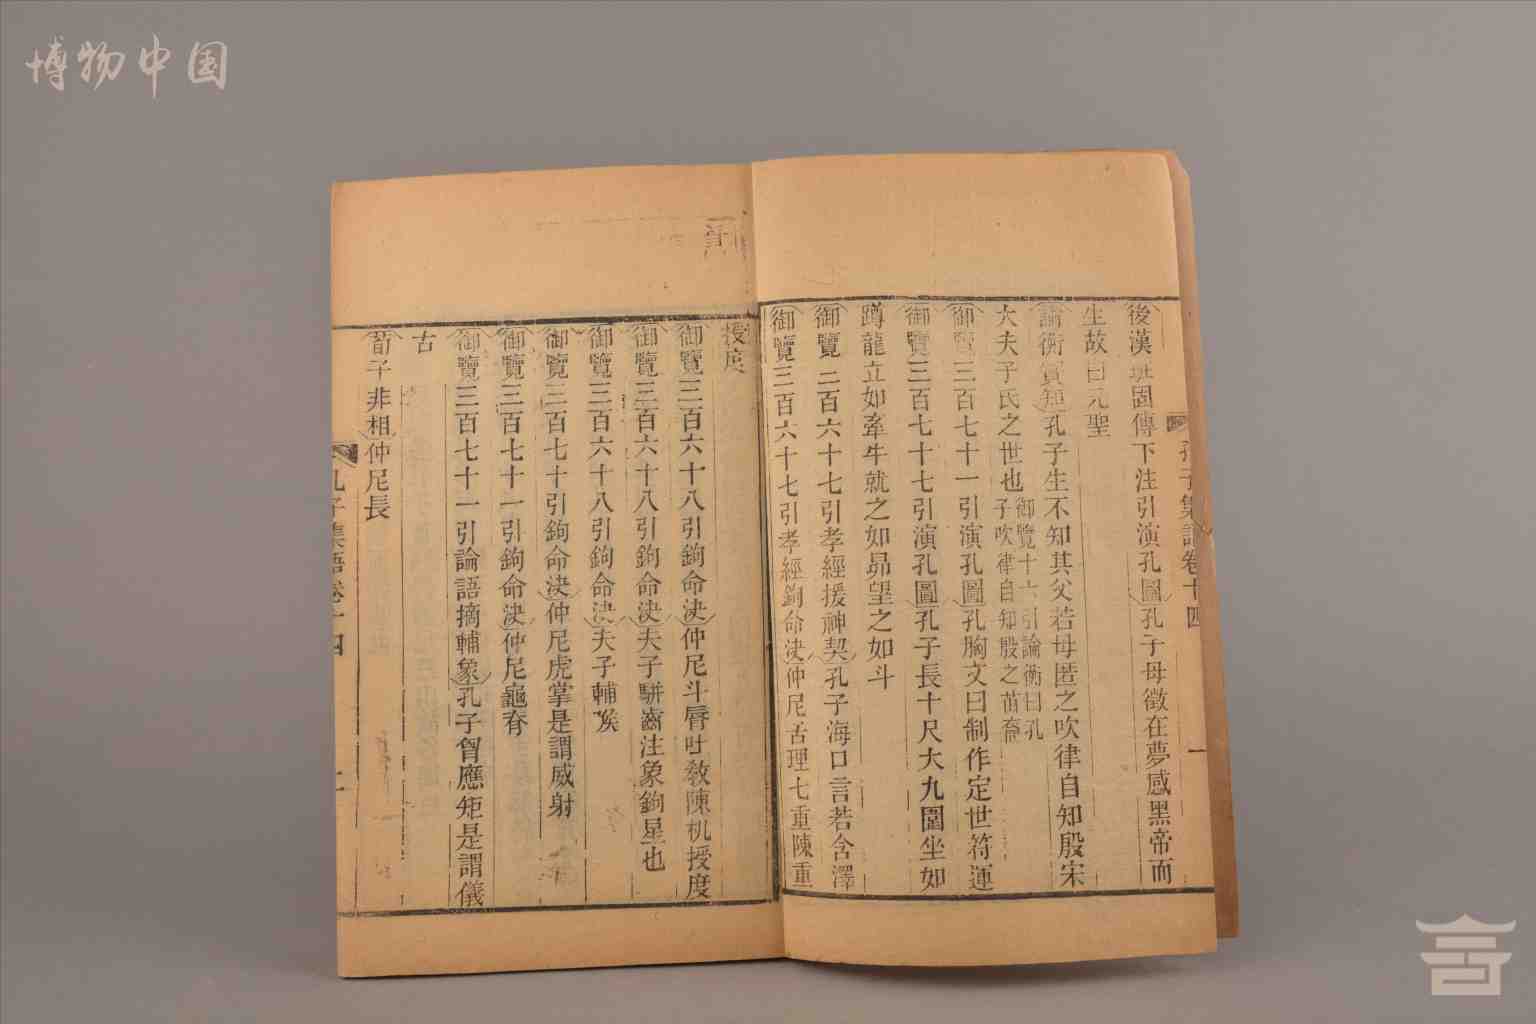 博物中国
後漢班固傳下注引演孔圖孔子母徵在夢感黑帝而
生故曰元聖
論衡實知孔子生不知其父若母匿之吹律自知殷宋
大夫子氏之世也
御覽十六引論衡曰孔
子吹律自知殷之苗裔
御覽三百七十一引演孔圖孔胸文曰制作定世符運
御覽三百七十七引演孔圖孔子長十尺大九圍坐如
蹲龍立如牽牛就之如昴望之如斗
御覽三百六十七引孝經援神契孔子海口言若含澤
御覽三百六十七引孝經鉤命決仲尼舌理七重陳重
授度
御覽三百六十八引鉤命決仲尼斗脣吐敎陳机授度
御覽三百六十八引鉤命決夫子駢齒注象鉤星也
御覽三百六十八引鉤命決夫子輔喉
御覽三百七十引鉤命決仲尼虎掌是謂威射
御覽三百七十一引鉤命決仲尼龜脊
御覽三百七十一引論語摘輔象孔子胷應矩是謂儀
古
荀子非相仲尼長
孔子集語卷十四
一
孔子集語卷十四
二